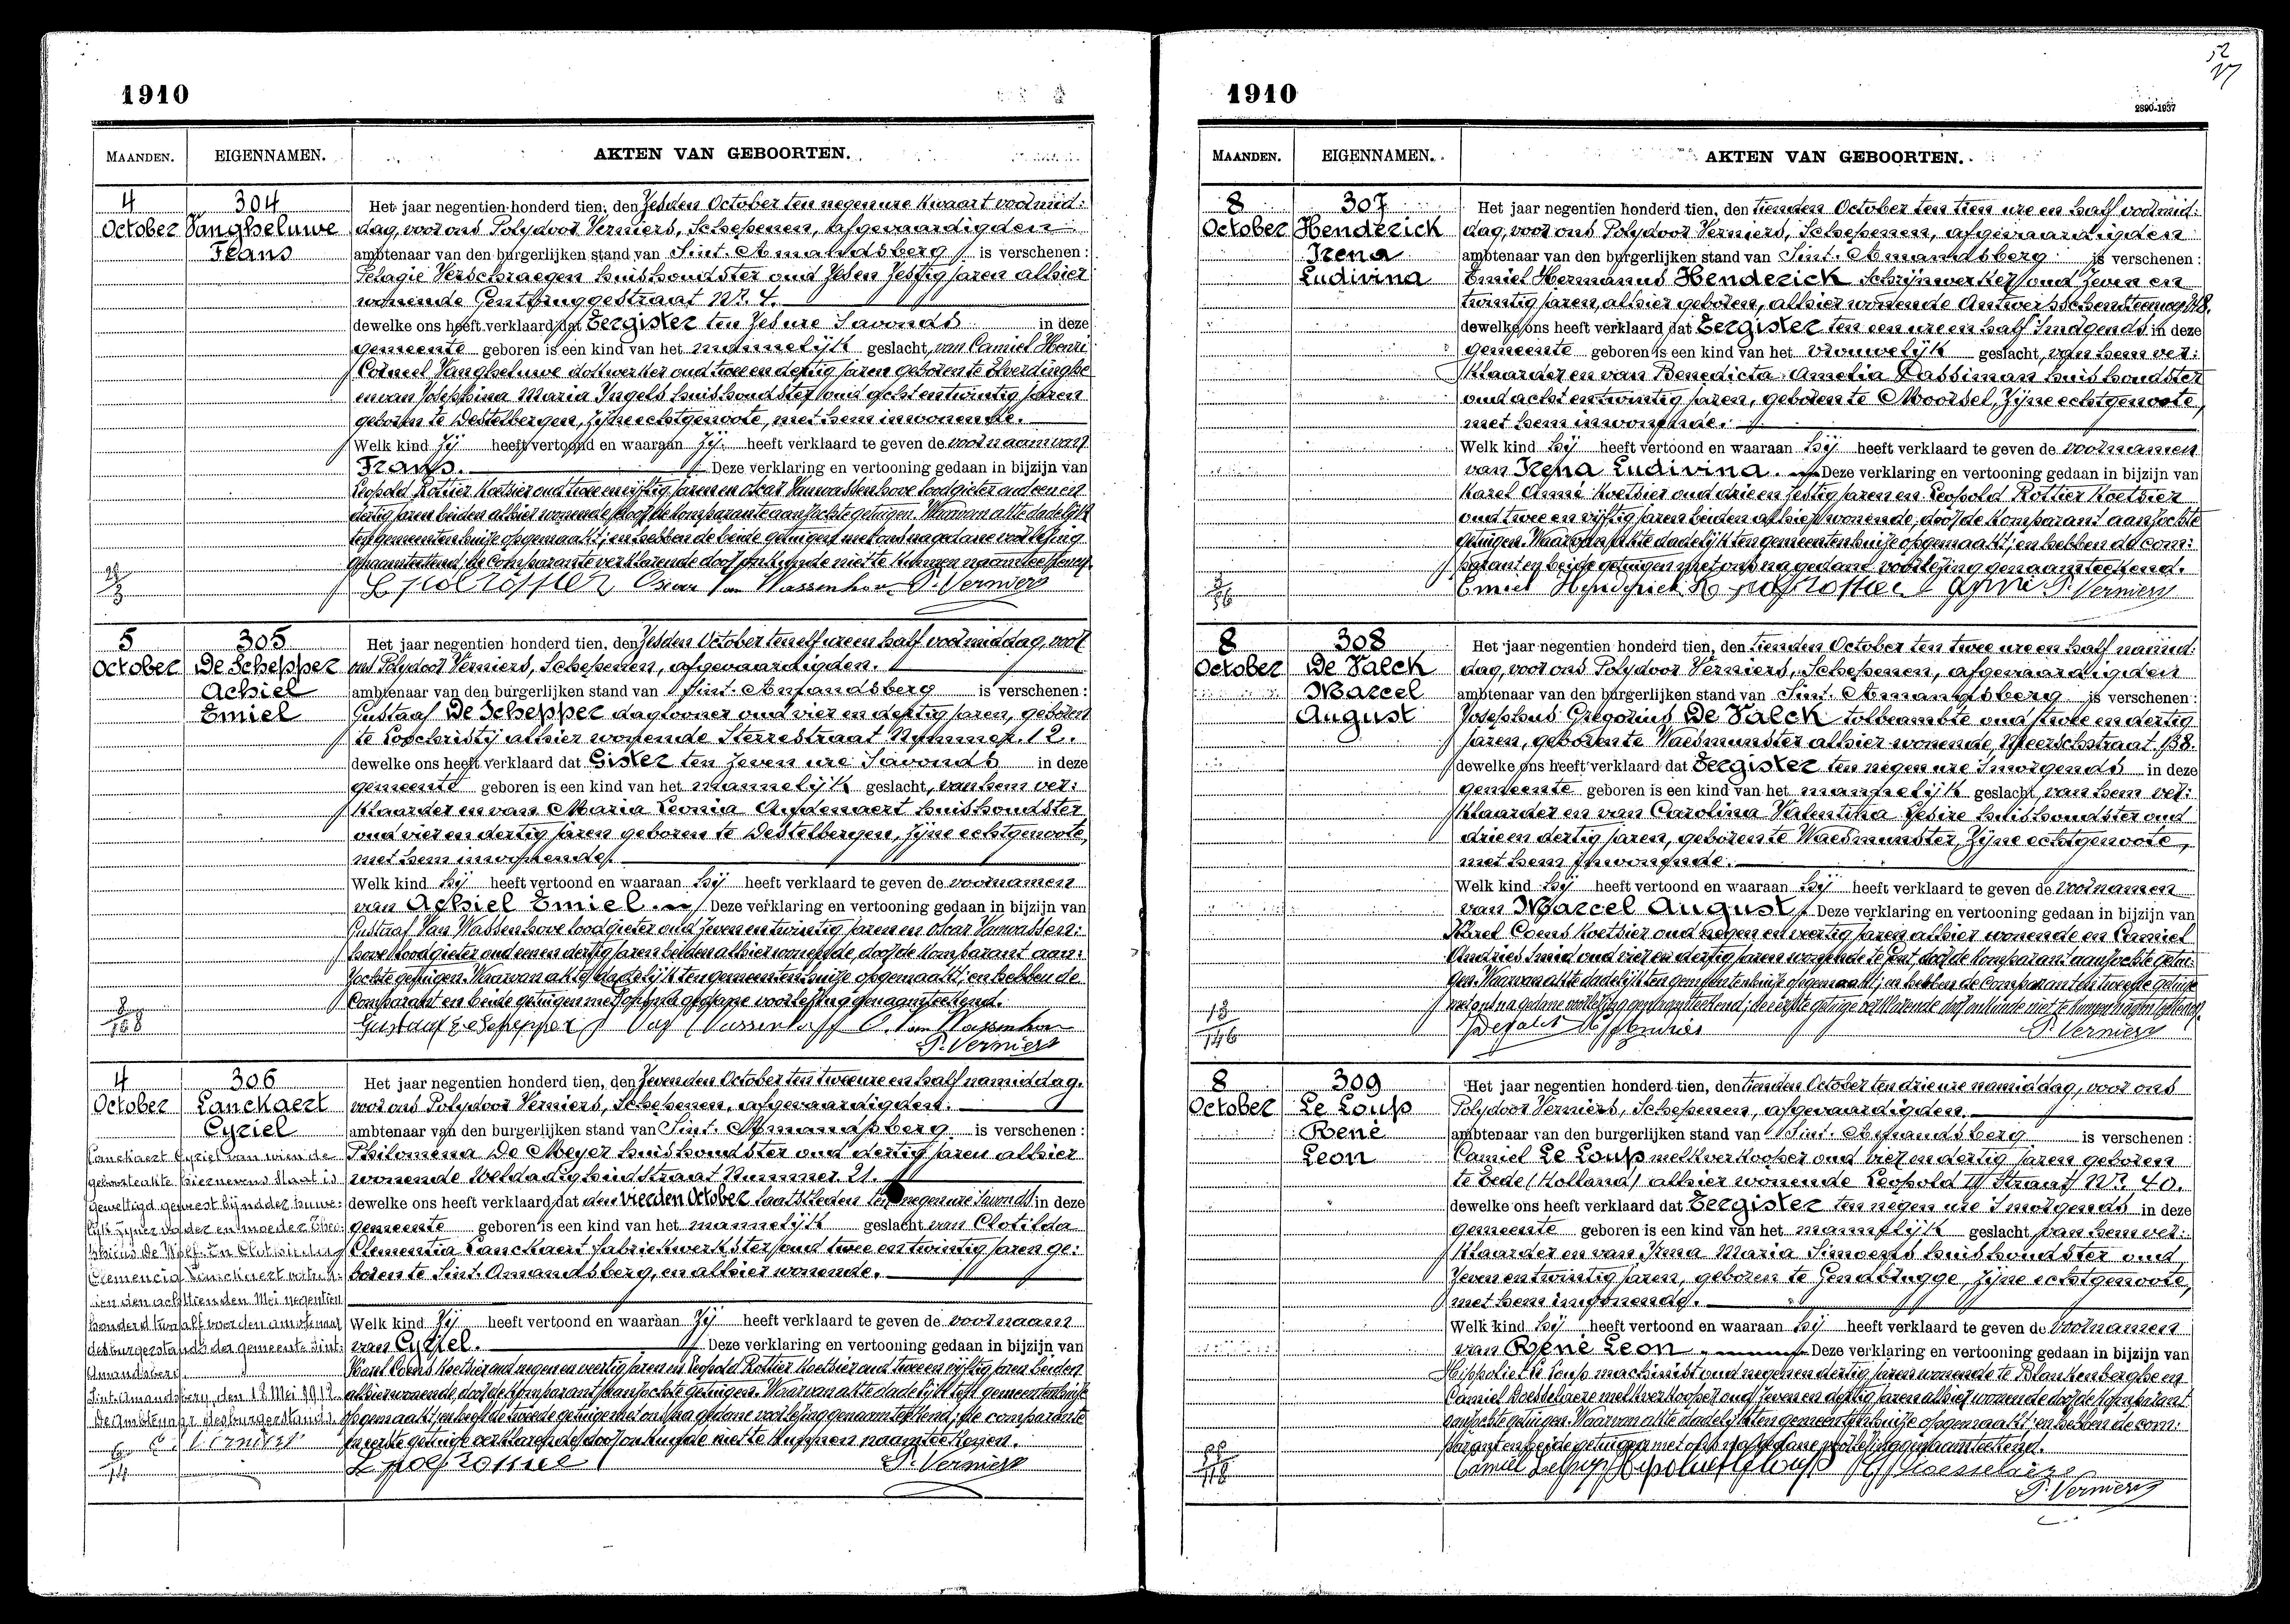 1910
MAANDEN. EIGENNAMEN. AKTEN VAN GEBOORTEN.
4 304
October Vangheluwe
Frans
Het jaar negentien honderd tien, den Zesden October ten negen ure kwaart voormid:
dag, voor ons Polydoor Verniers, Schepenen, afgevaardigden
ambtenaar van den burgerlijken stand van Sint. Amandsberg is verschenen:
Pelagie Verschraegen huishoudster oud Zeven Zestig jaren alhier
wonende Gentbruggestraat Nr. 4.
dewelke ons heeft verklaard dat Eergister ten Zes ure 's avonds in deze
gemeente geboren is een kind van het mannelijk geslacht, van Camiel Henri
Corneel Vangheluwe oud twee en dertig jaren geboren te Elverdinghe
en van Josephina Maria Ingels huishoudster oud acht en twintig jaren
geboren te Destelbergen, zijne echtgenoote, met hem inwonende.
Welk kind Zij heeft vertoond en waaraan Zij heeft verklaard te geven de voornaam van
Frans. Deze verklaring en vertooning gedaan in bijzijn van
Leopold Rottier Koetsier oud twee en vijftig jaren en Oscar Vanwassenhove loodgieter oud een en
dertig jaren beiden alhier wonende door de komparante aanzochte getuigen. Waarvan akte dadelijk
ten gemeentenhuize opgemaakt; en hebben de beide getuigen met ons na gedane voorlezing
genaamteekend; de Comparante verklarende door onkunde niet te kunnen naamteekenen.
P. Verniers
5 305
October De Schepper
Achiel
Emiel
Het jaar negentien honderd tien, den Zesden October ten elf ure en half voormiddag, voor
ons Polydoor Verniers, Schepenen, afgevaardigden.
ambtenaar van den burgerlijken stand van Sint. Amandsberg is verschenen:
Gustaaf De Schepper daglooner oud vier en dertig jaren, geboren
te Loochristij alhier wonende Sterrestraat Nummer 12.
dewelke ons heeft verklaard dat Gister ten Zeven ure 's avonds in deze
gemeente geboren is een kind van het mannelijk geslacht, van hem ver:
klaarder en van Maria Leonia Audenaert huishoudster
oud vier en dertig jaren geboren te Destelbergen, zijne echtgenoote,
met hem inwonende.
Welk kind hij heeft vertoond en waaraan hij heeft verklaard te geven de voornamen
van Achiel Emiel. Deze verklaring en vertooning gedaan in bijzijn van
Gustaaf Van Wassenhove loodgieter oud Zeven en twintig jaren en Oscar Vanwassen:
hove loodgieter oud een en dertig jaren beiden alhier wonende, door de komparant aan:
zochte getuigen. Waarvan akte dadelijk ten gemeentenhuize opgemaakt; en hebben de
Comparant en beide getuigen met ons na gedane voorlezing genaamteekend.
8
168
P. Verniers
4 306
October Lanckaert
Cyriel
Lanckaert Cyriel van wien de
geboorteakte hiernevens staat is
gewettigd geweest bij nader huwe:
lijk zijner vader en moeder
De Nobel en Clotilda
Clemencia Lanckaert
ien den achttienden Mei negentien
honderd twaalf voor den ambtenaar
des burgerstands der gemeente Sint:
Amandsberg.
Sint. Amandsberg, den 18 Mei 1912.
De Ambtenaar des burgerstands,
P. Verniers
6
14
Het jaar negentien honderd tien, den Zevenden October ten twee ure en half namiddag.
voor ons Polydoor Verniers, Schepenen, afgevaardigden.
ambtenaar van den burgerlijken stand van Sint. Amandsberg is verschenen:
Philomena De Meyer huishoudster oud dertig jaren alhier
wonende Weldadigheidstraat Nummer 21.
dewelke ons heeft verklaard dat den vierden October laatstleden ten negen ure 's avonds in deze
gemeente geboren is een kind van het mannelijk geslacht van Clotilda
Clementia Lanckaert fabriekwerkster oud twee en twintig jaren ge:
boren te Sint. Amandsberg, en alhier wonende.
Welk kind Zij heeft vertoond en waaraan Zij heeft verklaard te geven de voornaam
van Cyriel. Deze verklaring en vertooning gedaan in bijzijn van
Karel Coens Koetsier oud negen en veertig jaren en Leopold Rottier Koetsier oud twee en vijftig jaren beiden
alhier wonende, door de komparant aanzochte getuigen. Waarvan akte dadelijk ten gemeentenhuize
opgemaakt; en heeft de tweede getuige met ons na gedane voorlezing genaamteekend; de comparante
en eerste getuige verklarende door onkunde niet te kunnen naamteekenen.
P. Verniers
52
1910
2890-1937
MAANDEN. EIGENNAMEN. AKTEN VAN GEBOORTEN.
8 307
October Henderick
Irena
Ludivina
Het jaar negentien honderd tien, den tienden October ten tien ure en half voormid:
dag, voor ons Polydoor Verniers, Schepenen, afgevaardigden
ambtenaar van den burgerlijken stand van Sint. Amandsberg is verschenen:
Emiel Hermanus Henderick schrijnwerker oud Zeven en
twintig jaren, alhier geboren, alhier wonende Antwerpschensteenweg
dewelke ons heeft verklaard dat Eergister ten een ure en half 's morgends in deze
gemeente geboren is een kind van het vrouwelijk geslacht, van hem ver:
klaarder en van Benedicta Amelia Dassiman huishoudster
oud acht en twintig jaren, geboren te Moorsel, zijne echtgenoote,
met hem inwonende.
Welk kind hij heeft vertoond en waaraan hij heeft verklaard te geven de voornamen
van Irena Ludivina. Deze verklaring en vertooning gedaan in bijzijn van
Karel Annè Koetsier oud drie en Zestig jaren en Leopold Rottier Koetsier
oud twee en vijftig jaren beiden alhier wonende, door de komparant aanzochte
getuigen. Waarvan akte dadelijk ten gemeentenhuize opgemaakt; en hebben de com:
parant en beide getuigen met ons na gedane voorlezing genaamteekend.
Emiel Henderick P. Verniers
8 308
October De Valck
Marcel
August
Het jaar negentien honderd tien, den tienden October ten twee ure en half namid:
dag, voor ons Polydoor Verniers, Schepenen, afgevaardigden
ambtenaar van den burgerlijken stand van Sint. Amandsberg is verschenen:
Josephus Gregorius De Valck tolbeambte oud twee en dertig
jaren, geboren te Waesmunster alhier wonende, Meerschstraat 138.
dewelke ons heeft verklaard dat Eergister ten negen ure 's morgends in deze
gemeente geboren is een kind van het mannelijk geslacht van hem ver:
klaarder en van Carolina Valentina Desire huishoudster oud
drie en dertig jaren, geboren te Waesmunster, zijne echtgenoote,
met hem inwonende.
Welk kind hij heeft vertoond en waaraan hij heeft verklaard te geven de voornamen
van Marcel August. Deze verklaring en vertooning gedaan in bijzijn van
Karel Coens Koetsier oud negen en veertig jaren alhier wonende en Camiel
Andries Smid oud vier en dertig jaren wonende te Gent, door de komparant aanzochte getui:
gen. Waarvan akte dadelijk ten gemeentenhuize opgemaakt; en hebben de Comparant en tweede getuige
met ons na gedane voorlezing genaamteekend; de eerste getuige verklarende door onkunde niet te kunnen naamteekenen.
13
146
P. Verniers
8 309
October Le Loup
René
Leon
Het jaar negentien honderd tien, den tienden October ten drie ure namiddag, voor ons
Polydoor Verniers, Schepenen, afgevaardigden.
ambtenaar van den burgerlijken stand van Sint. Amandsberg is verschenen:
Camiel Le Loup melkverkooper oud vier en dertig jaren geboren
te Eede (Holland) alhier wonende Leopold II Straat Nr. 40.
dewelke ons heeft verklaard dat Eergister ten negen ure 's morgends in deze
gemeente geboren is een kind van het mannelijk geslacht van hem ver:
klaarder en van Irma Maria Simoens huishoudster oud
Zeven en twintig jaren, geboren te Gendbrugge, zijne echtgenoote,
met hem inwonende.
Welk kind hij heeft vertoond en waaraan hij heeft verklaard te geven de voornamen
van René Leon. Deze verklaring en vertooning gedaan in bijzijn van
Hippoliet Le Loup machinist oud negen en dertig jaren wonende te Blankenberghe en
Camiel Boesselaere melkverkooper oud Zeven en dertig jaren alhier wonende door de komparant
aanzochte getuigen. Waarvan akte dadelijk ten gemeentenhuize opgemaakt; en hebben de com:
parant en beide getuigen met ons na gedane voorlezing genaamteekend.
P. Verniers